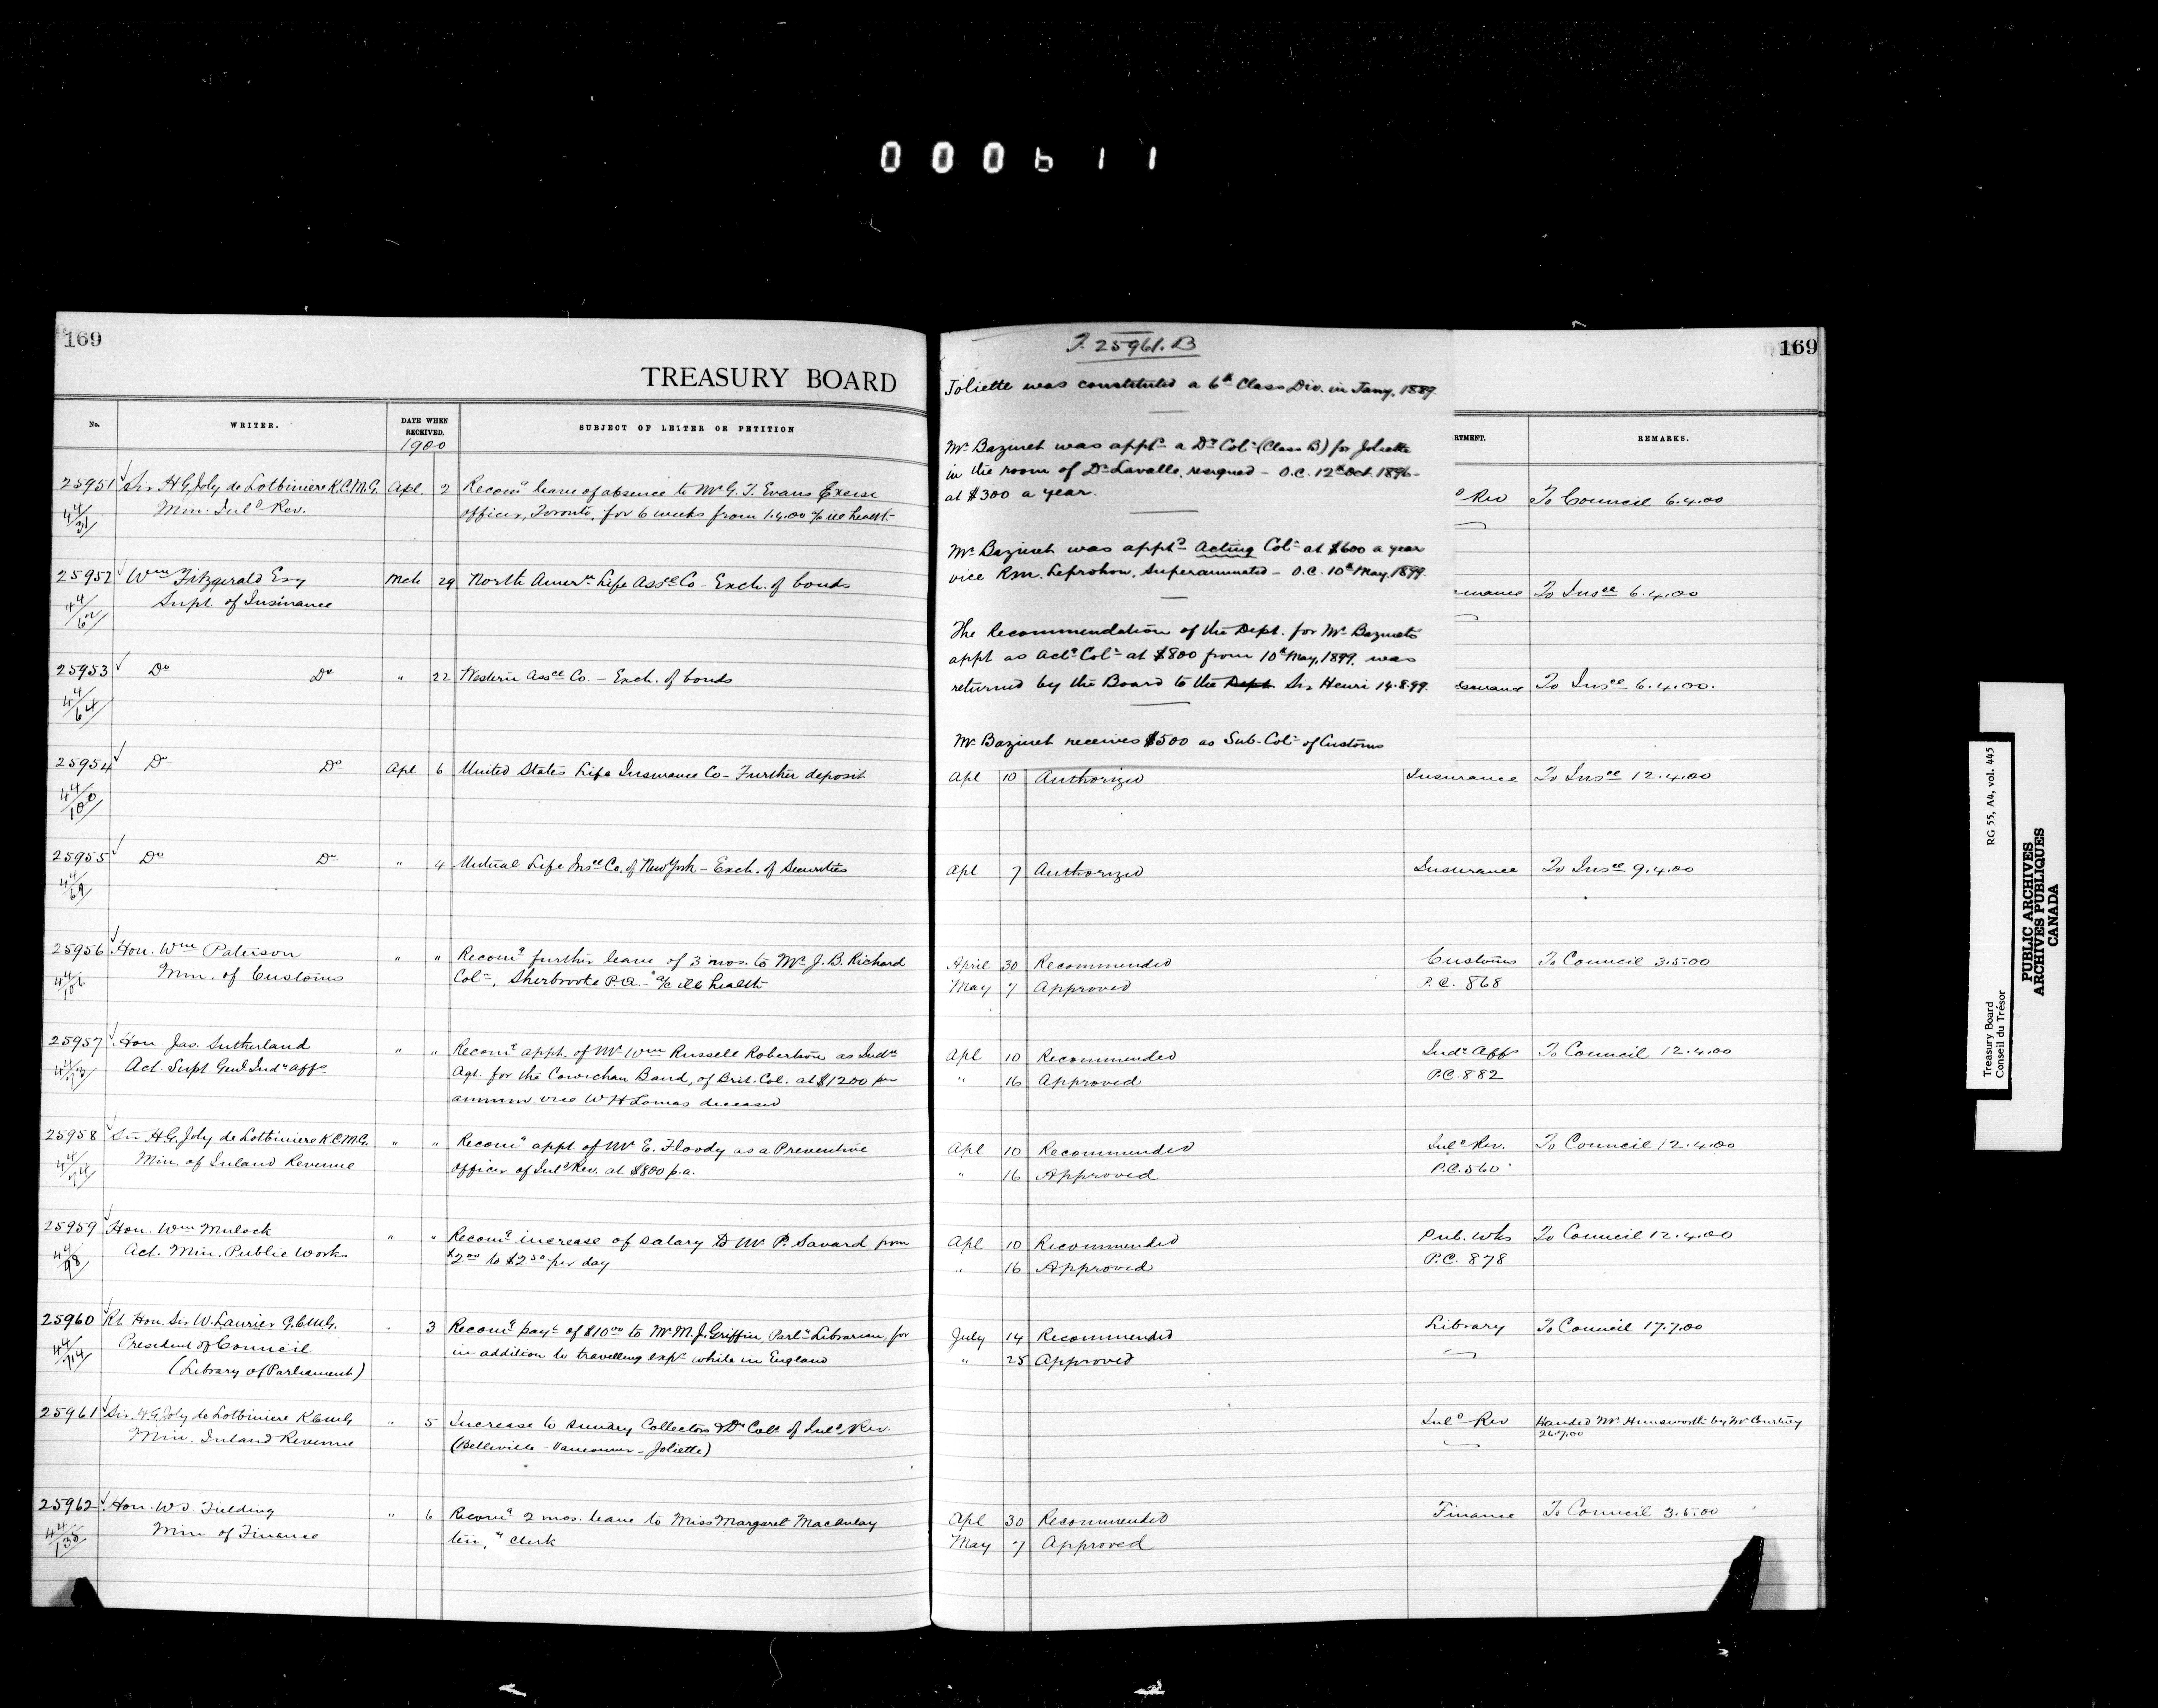 000611
169
TREASURY BOARD
No.
WRITER.
DATE WHEN RECEIVED.
1900
SUBJECT OF LETTER OR PETITION
25951 Sir H G Joly de Lotbiniere K.C.M.G. Apl. 2 Recomg leave of absence to Mr G. T. Evans Excise
44/31 Min. Inld Rev. officer, Toronto, for 6 weeks from 1.4.00 a/c ill health
25952 Wm Fitzgerald Esq Mch 29 North Amern Life Assce Co - Exch. of bonds
44/62 Supt. of Insurance
25953 Do Do " 22 Western Assce Co. - Exch. of bonds
44/64
25954 Do Do Apl 6 United States Life Insurance Co - Further deposit
44/100
25955 Do Do " 4 Mutual Life Insce Co. of New York - Exch. of Securities
44/69
25956 Hon. Wm Paterson " " Recomg further leave of 3 mos. to Mr J. B. Richard
Min. of Customs Colr, Sherbrooke P.Q. - a/c ill health
25957 Hon Jas. Sutherland " " Recomg appt. of Mr Wm Russell Robertson as Indn
Act. Supt Genl Indn Affs Agt. for the Cowichan Band, of Brit. Col. at $1200 per
annum vice W H Lomas deceased
25958 Sir H.G. Joly de Lotbiniere K.C.M.G. " " Recomg appt. of Mr E. Floody as a Preventive
44/74 Min. of Inland Revenue officer of Inld Rev. at $800 p.a.
25959 Hon. Wm Mulock " " Recomg increase of salary to Mr P. Savard from
44/98 Act. Min. Public Works $2.00 to $2.50 per day
25960 Rt. Hon. Sir W. Laurier G.C.M.G. " 3 Recomg payt of $10.00 to Mr M. J. Griffin, Parly Librarian, for
44/714 President of Council in addition to travelling exps while in England
(Library of Parliament)
25961 Sir H G Joly de Lotbiniere KCMG " 5 Increase to sundry Collectors & Dy Colrs of Inld Rev.
Min. Inland Revenue (Belleville - Vancouver - Joliette)
25962 Hon. W S. Fielding " 6 Recomg 2 mos. leave to Miss Margaret Macaulay
44/138 Min of Finance clerk
T. 25961. B
Joliette was constituted a 6th Class Div. in Jany, 1889.
Mr Bazinet was apptd a Dy Colr (Class B) for Joliette
in the room of Dr Lavalle, resigned - O.C. 12th Oct. 1896 -
at $300 a year.
Mr Bazinet was apptd Acting Colr at $600 a year
vice Rm. Leprohon, Superannuated - O.C. 10th May, 1899.
The Recommendation of the Dept. for Mr Bazinet's
appt as Actg Colr at $800 from 10th May, 1899, was
returned by the Board to the Dept. Sir Henri 14.8.99.
Mr Bazinet receives $500 as Sub-Colr of Customs
169
RTMENT.
REMARKS.
d Rev To Council 6.4.00
urance To Insce 6.4.00
surance To Insce 6.4.00.
Apl 10 Authorized Insurance To Insce 12.4.00
Apl 7 Authorized Insurance To Insce 9.4.00
April 30 Recommended Customs To Council 3.5.00
May 7 Approved P.C. 868
Apl 10 Recommended Indn Affs To Council 12.4.00
" 16 Approved P.C. 882
Apl 10 Recommended Inld Rev. To Council 12.4.00
" 16 Approved P.C. 560
Apl 10 Recommended Pub. Wks To Council 12.4.00
" 16 Approved P.C. 878
July 14 Recommended Library To Council 17.7.00
" 25 Approved
Inld Rev Handed Mr Hunsworth by Mr Courtney
26.7.00
Apl 30 Recommended Finance To Council 3.5.00
May 7 Approved
Treasury Board
Conseil du Trésor
RG 55, A4, vol. 445
PUBLIC ARCHIVES
ARCHIVES PUBLIQUES
CANADA